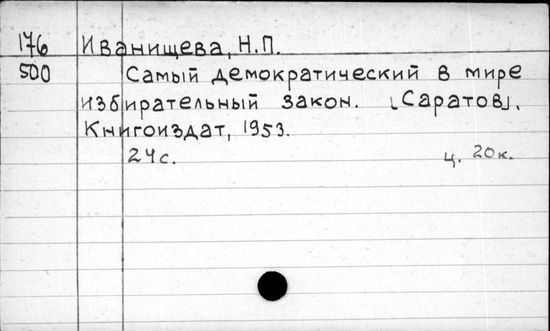 176 Иванищева, Н.П.
500 Самый демократический в мире
избирательный закон. [Саратов].
Книгоиздат, 1953.
24с. ц. 20к.